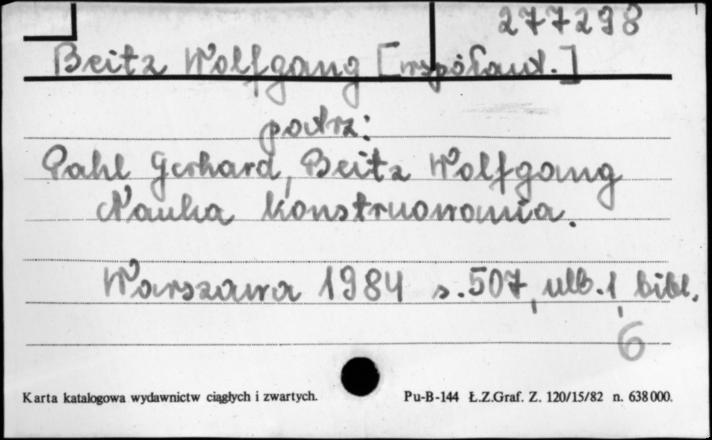 277298
Beitz Wolfgang [współaut.]
patrz:
Pahl Gerhard, Beitz Wolfgang
Nauka konstruowania.
Warszawa 1984 s. 507, nlb. 1, bibl.
6
Karta katalogowa wydawnictw ciągłych i zwartych.
Pu-B-144 Ł.Z.Graf. Z. 120/15/82 n. 638 000.